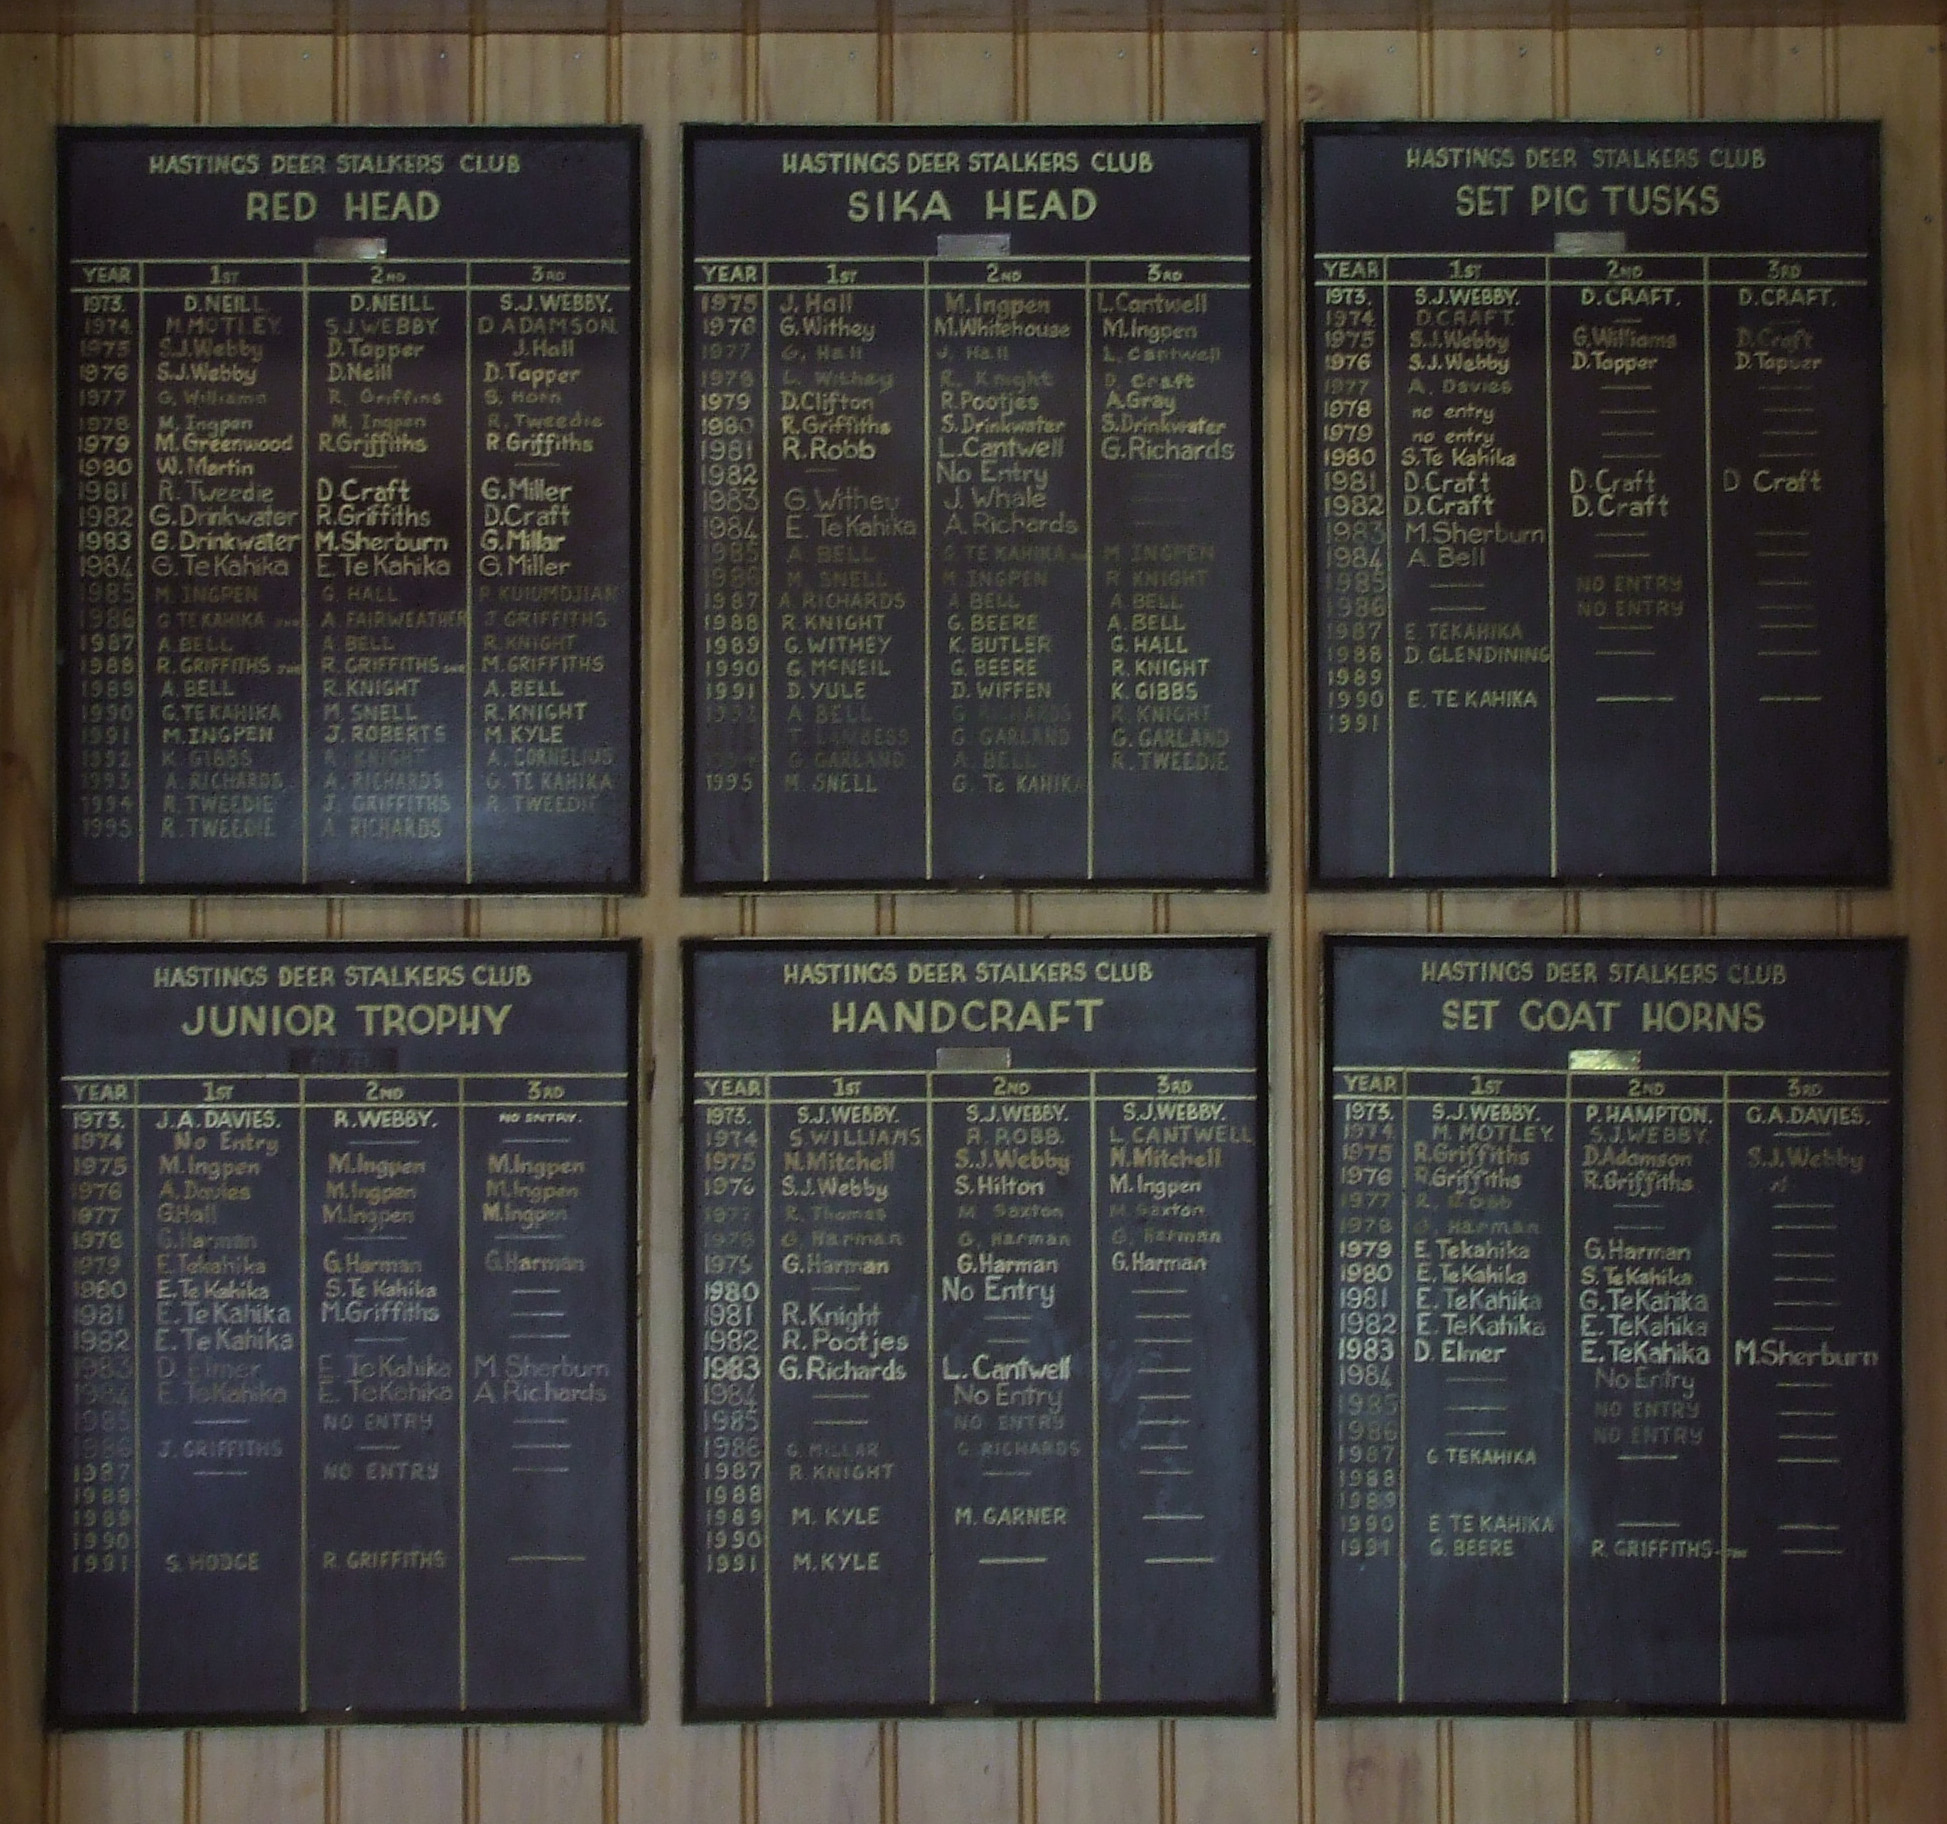 HASTINGS DEER STALKERS CLUB
RED HEAD
YEAR 1ST 2ND 3RD
1973. D.NEILL D.NEILL S.J.WEBBY.
1974 M.MOTLEY. S.J.WEBBY D ADAMSON.
1975 S.J.Webby D.Tapper J.Hall
1976 S.J.Webby D.Neill D.Tapper
1977 G. Williams R. Griffins S. Horn
1978 M. Ingpen M. Ingpen R. Tweedie
1979 M. Greenwood R.Griffiths R Griffiths
1980 W. Martin —
1981 R. Tweedie D Craft G.Miller
1982 G.Drinkwater R.Griffiths D.Craft
1983 G.Drinkwater M.Sherburn G.Millar
1984 G. Te Kahika E Te Kahika G.Miller
1985 M. INGPEN G. HALL P KUIUMDJIAN
1986 G TE KAHIKA A. FAIRWEATHER J. GRIFFITHS
1987 A.BELL A. BELL R.KNIGHT
1988 R. GRIFFITHS R. GRIFFITHS M. GRIFFITHS
1989 A. BELL R. KNIGHT A. BELL
1990 G.TE KAHIKA M. SNELL R.KNIGHT
1991 M.INGPEN J. ROBERTS M.KYLE
1992 K. GIBBS R. KNIGHT A. CORNELIUS
1993 A. RICHARDS A. RICHARDS G. TE KAHIKA
1994 R. TWEEDIE J. GRIFFITHS R. TWEEDIE
1995 R. TWEEDIE A. RICHARDS
HASTINGS DEER STALKERS CLUB
SIKA HEAD
YEAR 1ST 2ND 3RD
1975 J. Hall M. Ingpen L.Cantwell
1976 G.Withey M.Whitehouse M.Ingpen
1977 G. Hall J. Hall L. Cantwell
1978 L. Withey R. Knight D. Craft
1979 D.Clifton R.Pootjes A.Gray
1980 R.Griffiths S.Drinkwater S.Drinkwater
1981 R.Robb L.Cantwell G.Richards
1982 — No Entry —
1983 G.Withey J. Whale —
1984 E. Te Kahika A. Richards —
1985 A. BELL G TE KAHIKA M INGPEN
1986 M. SNELL M INGPEN R KNIGHT
1987 A. RICHARDS A BELL A. BELL
1988 R.KNIGHT G. BEERE A. BELL
1989 G.WITHEY K. BUTLER G. HALL
1990 G. McNEIL G. BEERE R. KNIGHT
1991 D. YULE D. WIFFEN K. GIBBS
1992 A BELL G RICHARDS R KNIGHT
T. LAMBESS G. GARLAND G. GARLAND
G GARLAND A BELL R. TWEEDIE
1995 M. SNELL G. Te KAHIKA
HASTINGS DEER STALKERS CLUB
SET PIG TUSKS
YEAR 1ST 2ND 3RD
1973. S.J.WEBBY. D.CRAFT. D.CRAFT.
1974 D.CRAFT. —
1975 S.J.Webby G.Williams D.Craft
1976 S.J.Webby D.Tapper D.Tapper
1977 A. Davies — —
1978 no entry — —
1979 no entry — —
1980 S.Te Kahika — —
1981 D.Craft D.Craft D Craft
1982 D.Craft D.Craft
1983 M.Sherburn — —
1984 A. Bell — —
1985 — NO ENTRY —
1986 — NO ENTRY —
1987 E. TEKAHIKA — —
1988 D. GLENDINING — —
1989
1990 E. TE KAHIKA — —
1991
HASTINGS DEER STALKERS CLUB
JUNIOR TROPHY
YEAR 1ST 2ND 3RD
1973. J.A.DAVIES. R.WEBBY. NO ENTRY.
1974 No Entry — —
1975 M.Ingpen M.Ingpen M.Ingpen
1976 A.Davies M.Ingpen M.Ingpen
1977 G.Hall M.Ingpen M.Ingpen
1978 G.Harman — —
1979 E.Tekahika G.Harman G.Harman
1980 E.Te Kahika S.Te Kahika —
1981 E.Te Kahika M.Griffiths —
1982 E.Te Kahika — —
1983 D. Elmer E. Te Kahika M. Sherburn
1984 E. Te Kahika E. Te Kahika A Richards
1985 — NO ENTRY —
1986 J. GRIFFITHS — —
1987 — NO ENTRY —
1988
1989
1990
1991 S. HODGE R. GRIFFITHS —
HASTINGS DEER STALKERS CLUB
HANDCRAFT
YEAR 1ST 2ND 3RD
1973. S.J.WEBBY. S.J.WEBBY. S.J.WEBBY.
1974 S.WILLIAMS R. ROBB. L.CANTWELL
1975 N.Mitchell S.J.Webby N.Mitchell
1976 S.J.Webby S.Hilton M.Ingpen
1977 R. Thomas M Saxton M. Saxton
1978 G. Harman G. Harman G. Harman
1975 G.Harman G.Harman G.Harman
1980 — No Entry —
1981 R.Knight — —
1982 R.Pootjes — —
1983 G.Richards L.Cantwell —
1984 — No Entry —
1985 — NO ENTRY —
1986 G. MILLAR G RICHARDS —
1987 R.KNIGHT — —
1988
1989 M. KYLE M. GARNER —
1990
1991 M.KYLE — —
HASTINGS DEER STALKERS CLUB
SET GOAT HORNS
YEAR 1ST 2ND 3RD
1973. S.J.WEBBY. P.HAMPTON. G.A.DAVIES.
1974. M. MOTLEY. S.J.WEBBY. —
1975 R.Griffiths D.Adamson S.J.Webby
1976 R.Griffiths R.Griffiths
1977 R. Robb — —
1978 G. Harman — —
1979 E. Tekahika G.Harman —
1980 E. Te Kahika S.Te Kahika —
1981 E. Te Kahika G.Te Kahika —
1982 E.Te Kahika E.Te Kahika —
1983 D. Elmer E.Te Kahika M.Sherburn
1984 — No Entry —
1985 — NO ENTRY —
1986 — NO ENTRY —
1987 G TEKAHIKA — —
1988
1989
1990 E. TE KAHIKA — —
1991 G. BEERE R. GRIFFITHS —